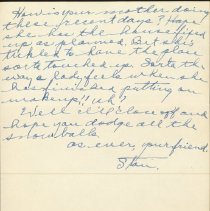 How is your mother doing
these recent days? Hope
she has the house fixed
up as planned. But she's
tickled to have the place
sorta touched up. Sorta the
way a lady feels when she
has finished putting on
makeup, "uh"?
Well I'll close off and
hope you dodge all the
snow balls
as ever, your friend
Stan.